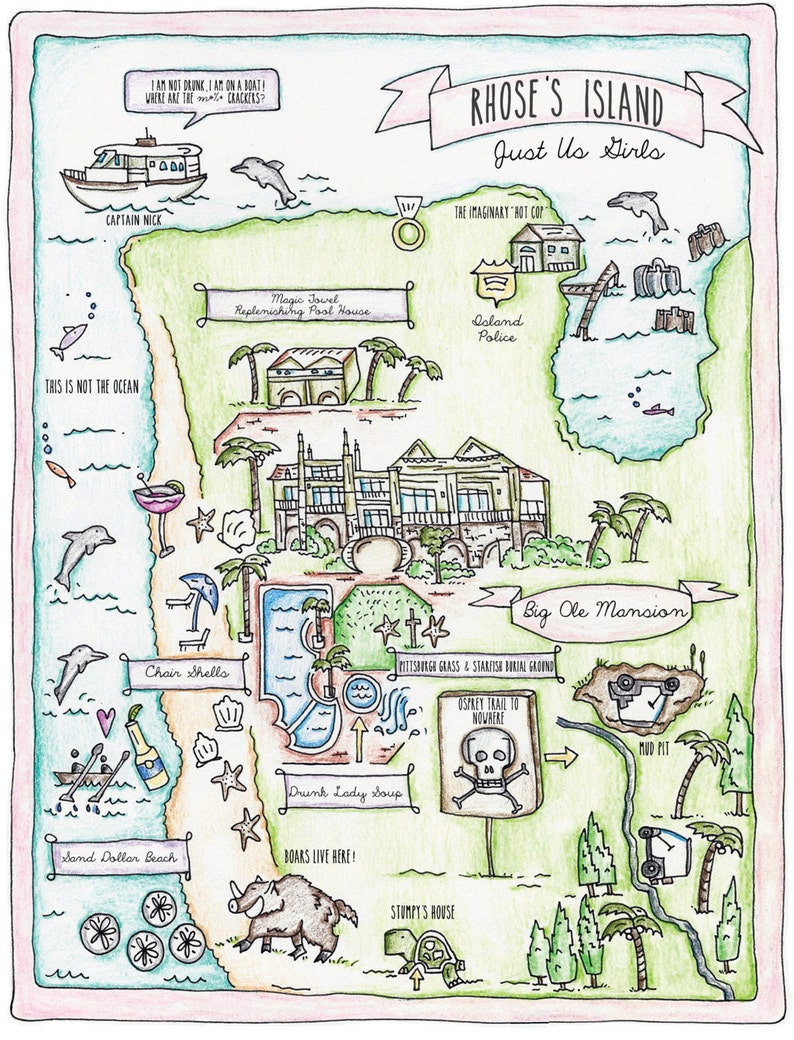 I AM NOT DRUNK, I AM ON A BOAT!
WHERE ARE THE m*%+ CRACKERS?
RHOSE'S ISLAND
Just Us Girls
CAPTAIN NICK
THE IMAGINARY "HOT COP
Magic Towel
Replenishing Pool House
Island
Police
THIS IS NOT THE OCEAN
Big Ole Mansion
Chair Shells
PITTSBURGH GRASS & STARFISH BURIAL GROUND
OSPREY TRAIL TO
NOWHERE
MUD PIT
Drunk Lady Soup
Sand Dollar Beach
BOARS LIVE HERE!
STUMPY'S HOUSE